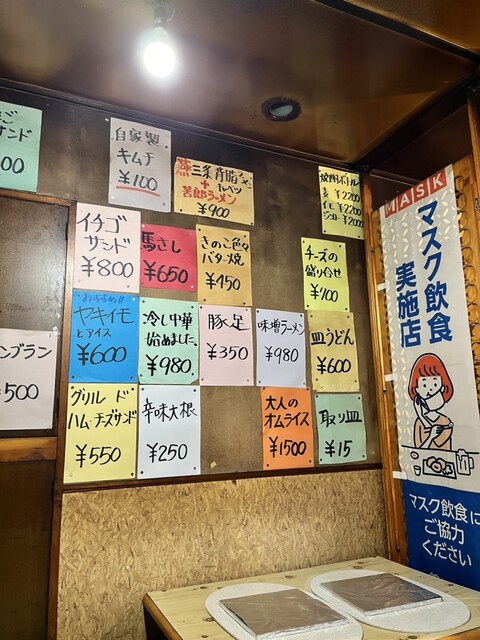 ンド
00
自家製
キムチ
¥100
三条背脂
+ キャベツ
苦郎ラーメン
¥900
焼酎ボトル
麦 ¥2200
イモ ¥2200
¥2200
イチゴ
サンド
¥800
馬さし
¥650
きのこ色々
バター焼
¥450
チーズの
盛り合せ
¥700
おすすめ!!
ヤキイモ
とアイス
¥600
冷し中華
始めました。
¥980
豚足
¥350
味噌ラーメン
¥980
皿うどん
¥600
ンブラン
¥500
グリルド
ハム・チーズサンド
¥550
辛味大根
¥250
大人の
オムライス
¥1500
取り皿
¥15
MASK
マスク飲食
実施店
マスク飲食に
ご協力
ください